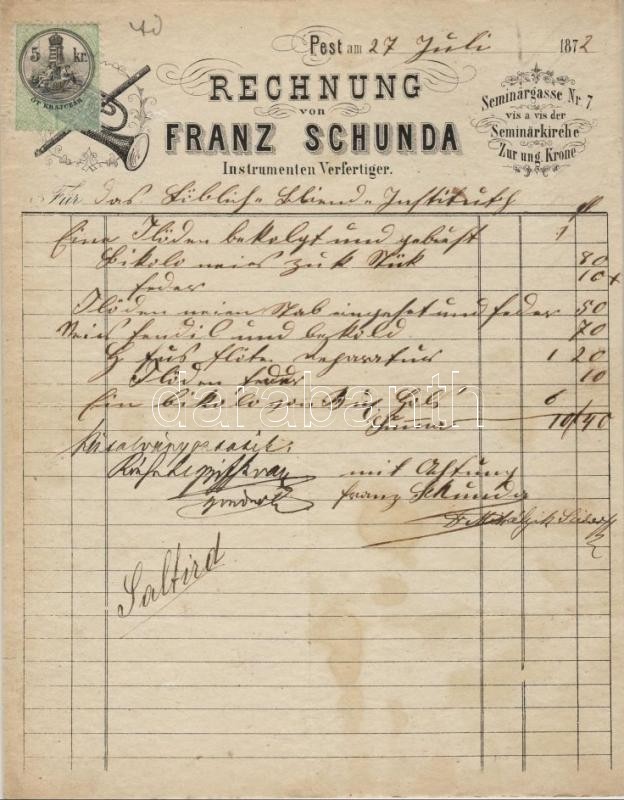 5 kr.
ÖT KRAJCZÁR
Pest am 27 Juli 1872
RECHNUNG
von
FRANZ SCHUNDA
Instrumenten Verfertiger.
Seminärgasse Nr. 7.
vis a vis der
Seminärkirche
Zur ung. Krone
Für das Löbliche Bliende Instituth fl
Eine Flöden bekolgt und gebust 1
Bikolo neies zuk Stük 80
feder 10 +
Flöden neien Stab eingesetzt und feder 50
Neies und bekold 70
fus flöte Reparatur 1 20
Flöden feder 10
Ein bikolo von Bux Hols 6
Summa 10/40
mit Achtung
Franz Schunda
Saltird
darabanth